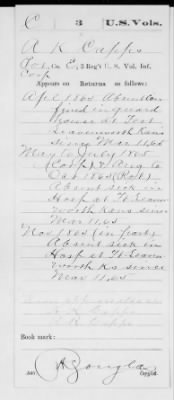 C 3 U.S. Vols.
A K Capps
Co. E, 3 Reg't U.S. Vol. Inf.
Corp
Appears on Returns as follows:
April 1865 Absent on
guard
House at Fort
Leavenworth Kans
since Mar 11.65
May to July 1865
Aug to
Dec 1865
Absent sick in
Hosp at Ft Leaven
worth Kans since
Mar 11.65
Nov 1865
Absent sick in
Hosp at Ft Leaven
worth Ks since
Mar 11.65
K Capps
K Capps
Book mark:
Copyist.